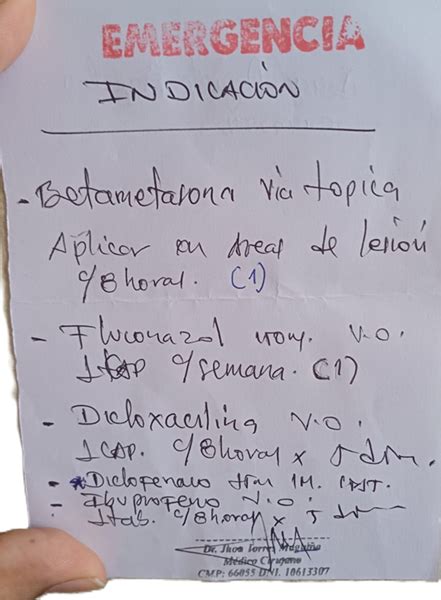 EMERGENCIA
INDICACIÓN
- Betametasona via topica
Aplicar en areas de lesión
c/8horas. (1)
- Fluconazol V.O.
1 CAP c/semana. (1)
- Dicloxacilina V.O.
1 CAP. c/8horas x 5
- * Diclofenaco IM.
- Ibuprofeno V.O.
1tab. c/8horas x 5
Dr. Jhon Torres
Médico Cirujano
CMP: 66055 DNI. 10613307